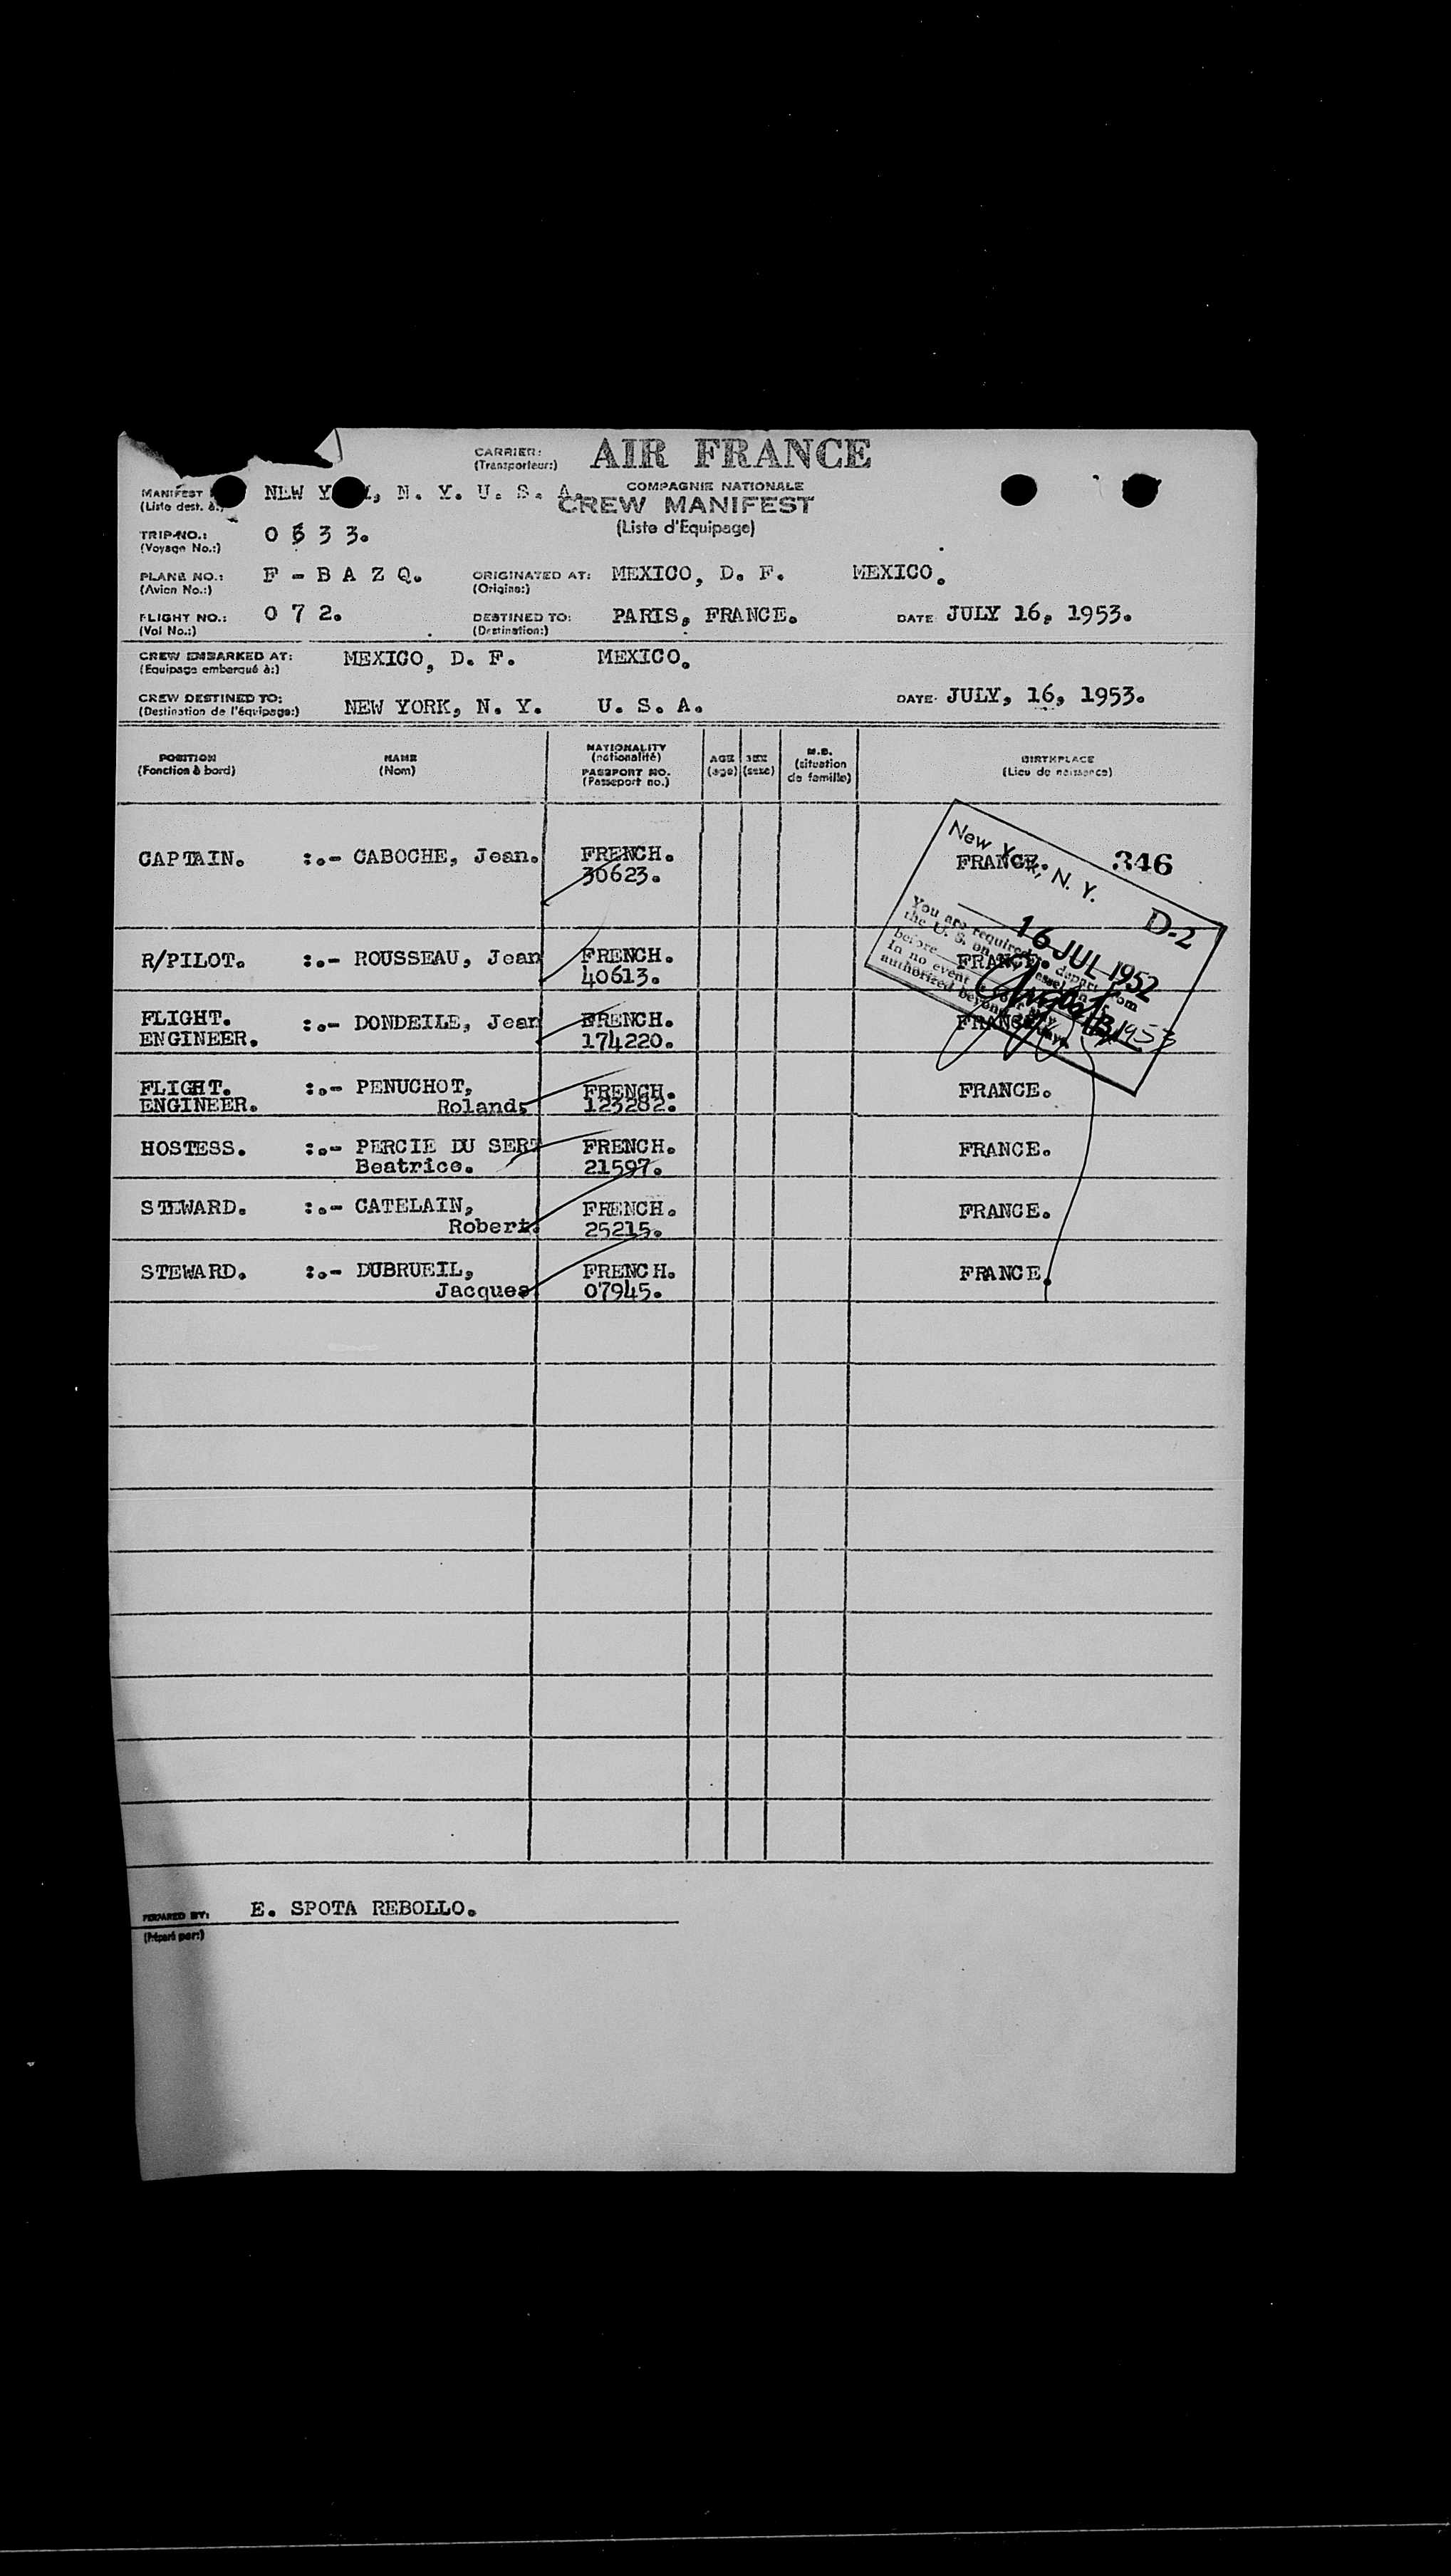 CARRIER: AIR FRANCE
(Transporteur:)
MANIFEST NEW Y , N. Y. U. S. A. COMPAGNIE NATIONALE
(Liste dest. à:) CREW MANIFEST
(Liste d'Equipage)
TRIP NO.: 0 6 3 3.
(Voyage No.:)
PLANE NO.: F - B A Z Q. ORIGINATED AT: MEXICO, D. F. MEXICO.
(Avion No.:) (Origine:)
FLIGHT NO.: 0 7 2. DESTINED TO: PARIS, FRANCE. DATE JULY 16, 1953.
(Vol No.:) (Destination:)
CREW EMBARKED AT: MEXICO, D. F. MEXICO.
(Equipage embarqué à:)
CREW DESTINED TO: NEW YORK, N. Y. U. S. A. DATE JULY, 16, 1953.
(Destination de l'équipage:)
POSITION NAME NATIONALITY AGE SEX M.S. BIRTHPLACE
(Fonction à bord) (Nom) (nationalité) (age) (sexe) (situation (Lieu de naissance)
PASSPORT NO. de famille)
(Passeport no.)
CAPTAIN. :.- CABOCHE, Jean. FRENCH. FRANCE. 346
30623.
New York, N. Y.
D-2
16 JUL 1952
You are required to depart from
the U. S. on vessel
before
In no event
authorized beyond days
1953
R/PILOT. :.- ROUSSEAU, Jean FRENCH. FRANCE.
40613.
FLIGHT. :.- DONDEILE, Jean FRENCH. FRANCE.
ENGINEER. 174220.
FLIGHT. :.- PENUCHOT, FRENCH. FRANCE.
ENGINEER. Roland. 123282.
HOSTESS. :.- PERCIE DU SERT FRENCH. FRANCE.
Beatrice. 21597.
STEWARD. :.- CATELAIN, FRENCH. FRANCE.
Robert. 25215.
STEWARD. :.- DUBRUEIL, FRENCH. FRANCE.
Jacques 07945.
PREPARED BY: E. SPOTA REBOLLO.
(Préparé par:)